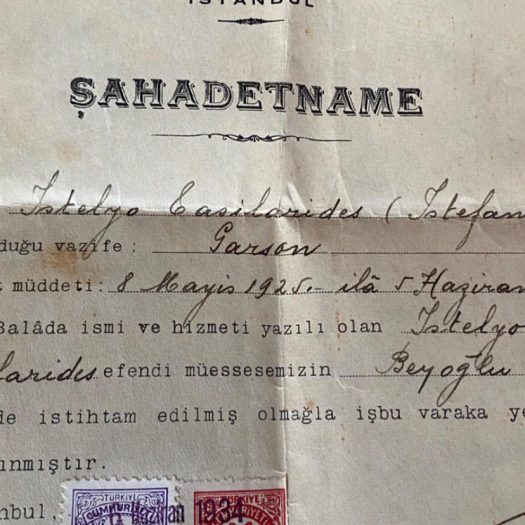 ISTANBUL
ŞAHADETNAME
Istelyo Casilarides (Istefan
duğu vazife : Garson
t müddeti: 8 Mayis 1925.- ilâ 5 Haziran
Balâda ismi ve hizmeti yazılı olan Istelyo
larides efendi müessesemizin Beyoğlu
de istihtam edilmiş olmağla işbu varaka ye
ınmıştır.
nbul, Haziran 1934
TÜRKİYE TÜRKİYE
CUMHURİ MHURİYETİ